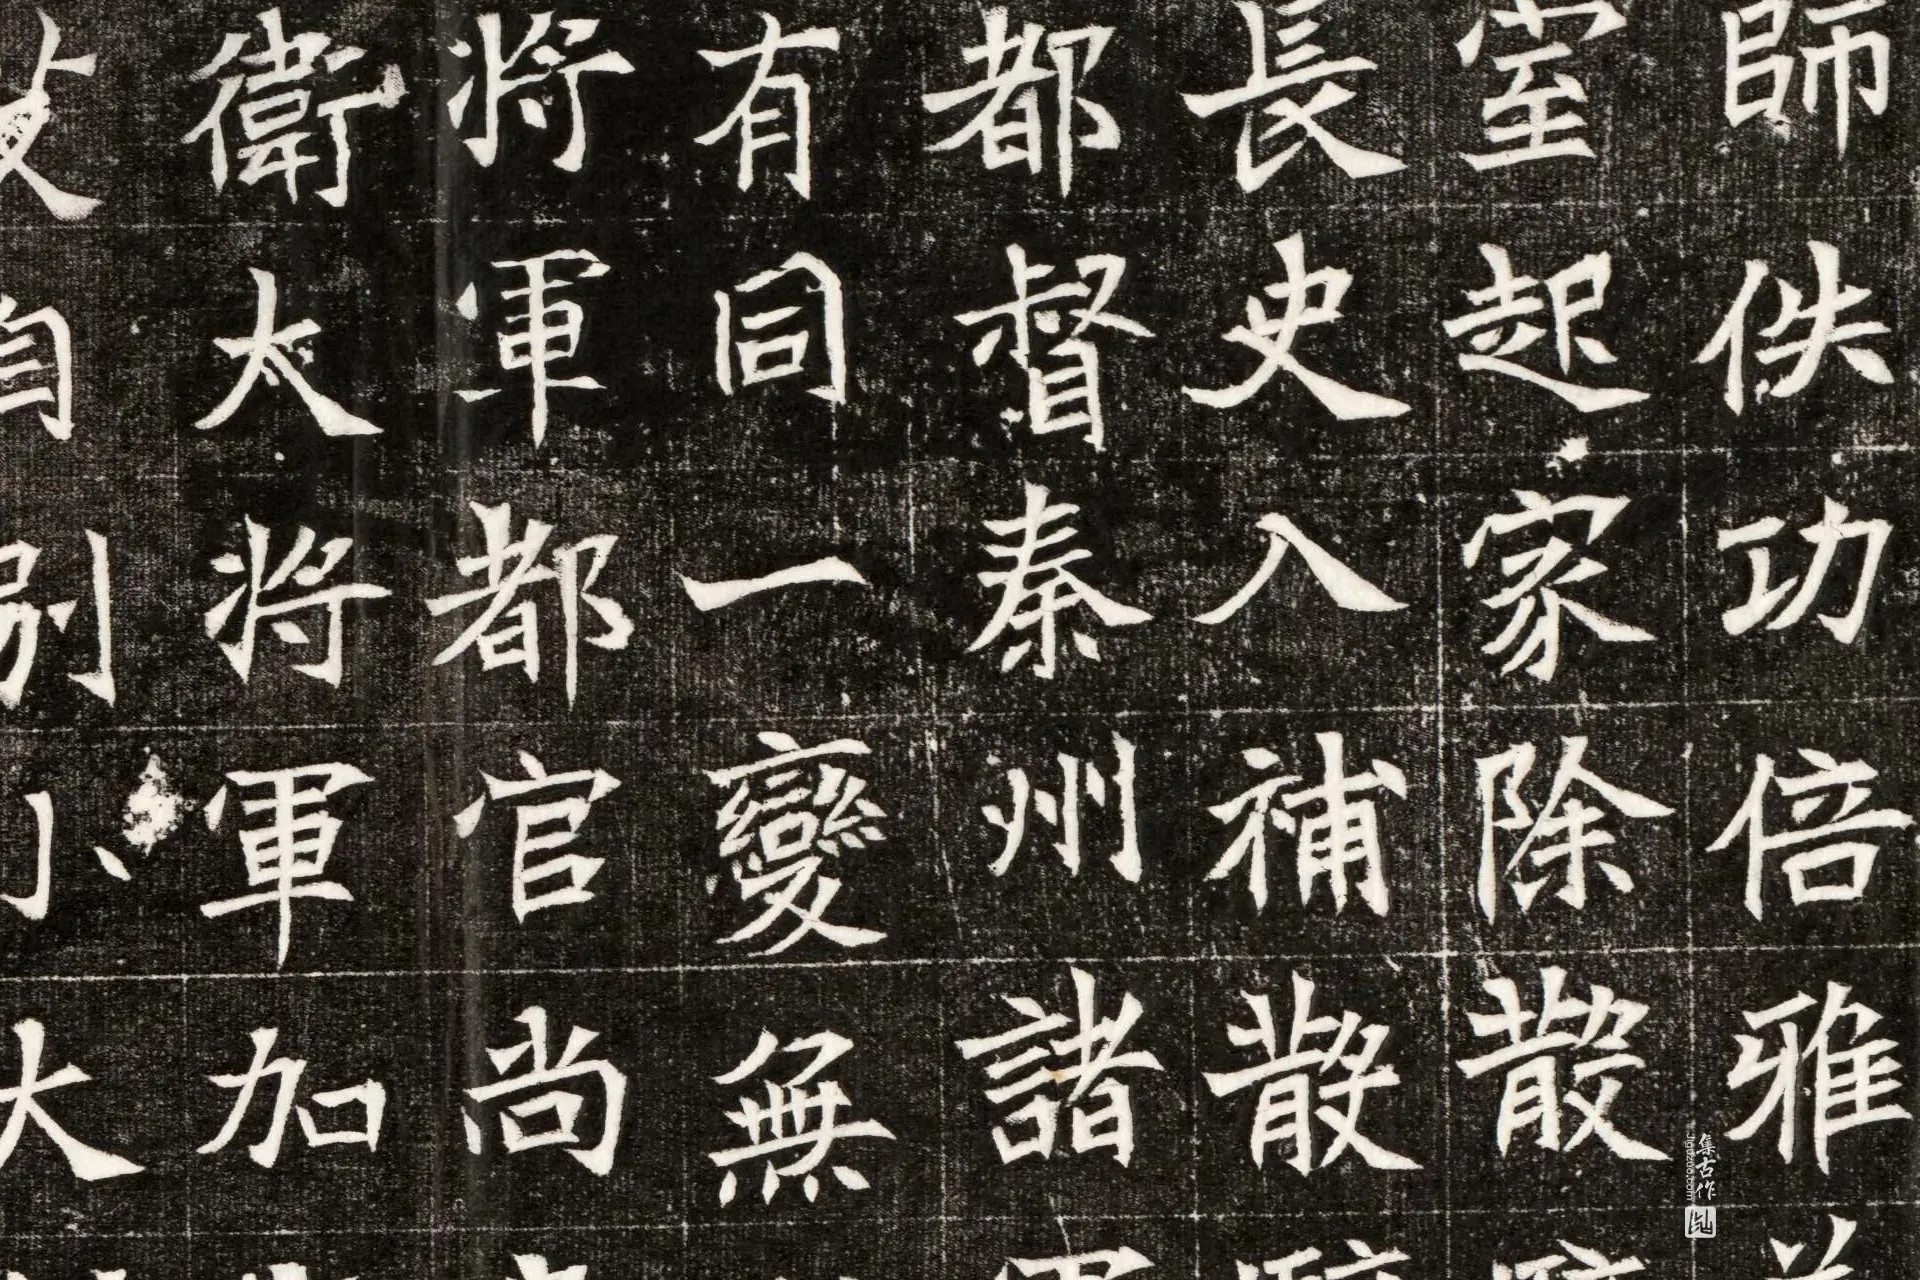 師佚功倍雅
室起家除散
長史入補散
都督秦州諸
有同一變無
将軍都官尚
衛大将軍加
自別
集古作